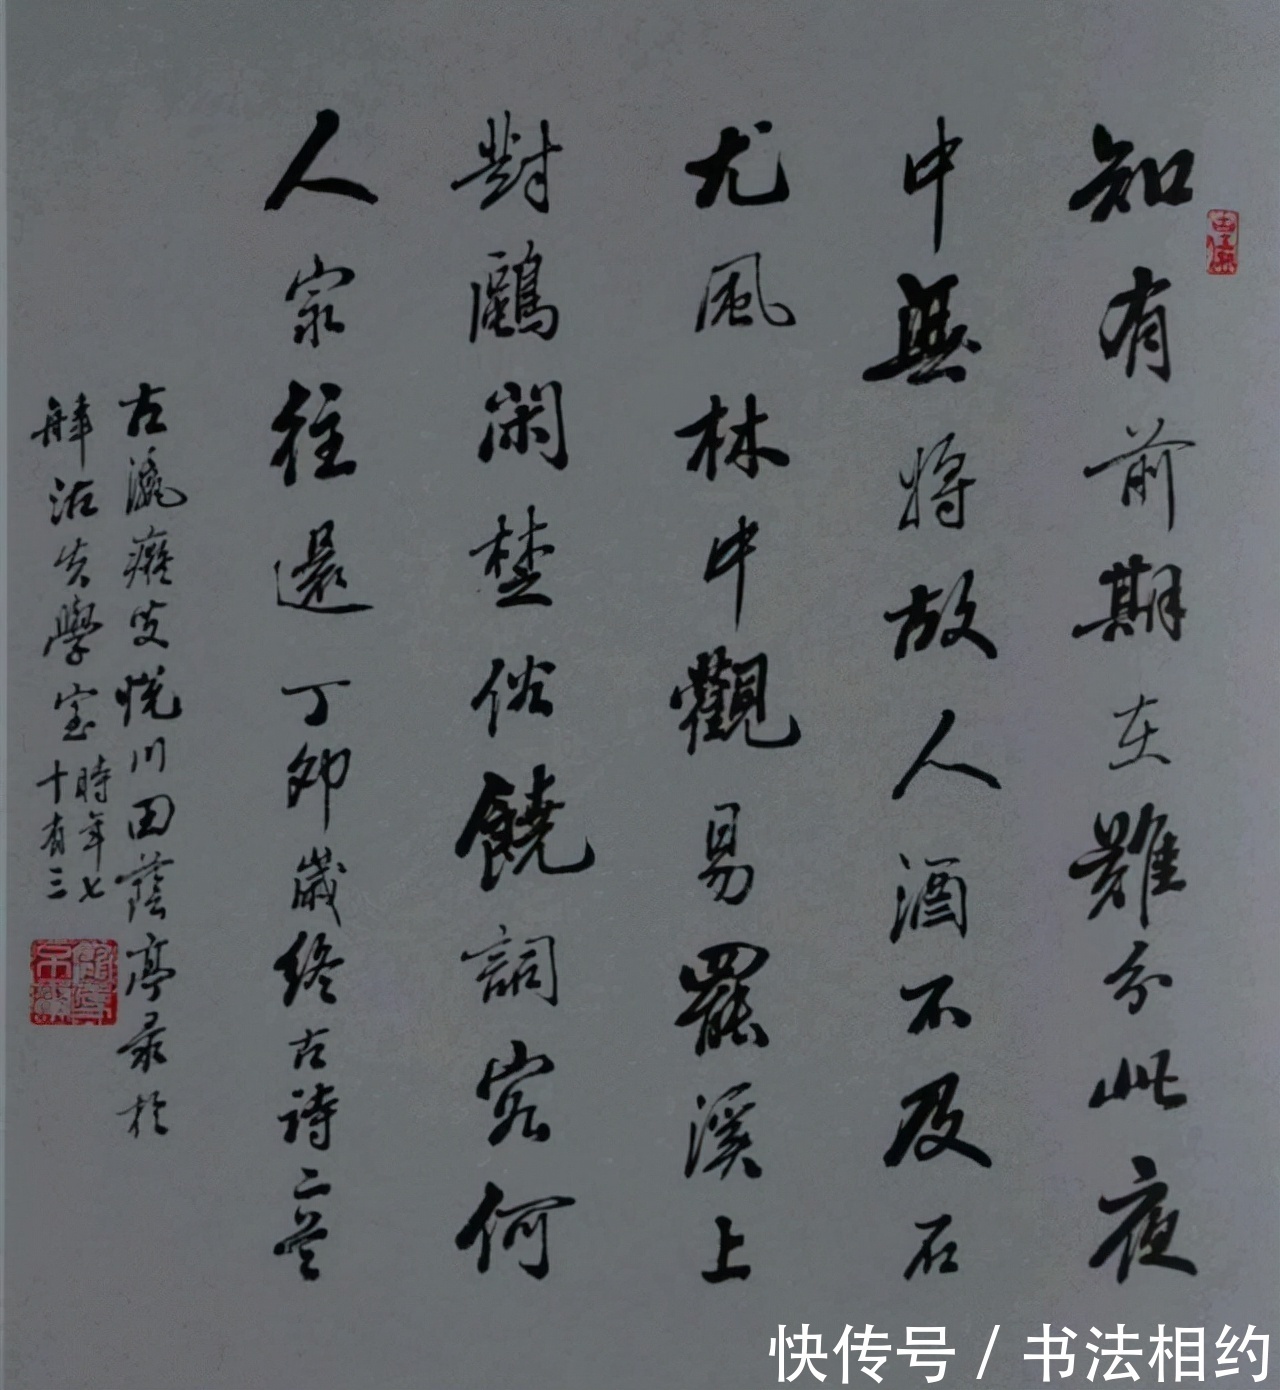 知有前期在難分此夜
中無將故人酒不及石
尤風林中觀易罷溪上
對鷗閑楚俗饒詞客何
人家往還丁卯歲終古詩二首
古瀛癡叟悦川田蔭亭录於
津沽失學室時年七十有三
快传号 / 书法相约